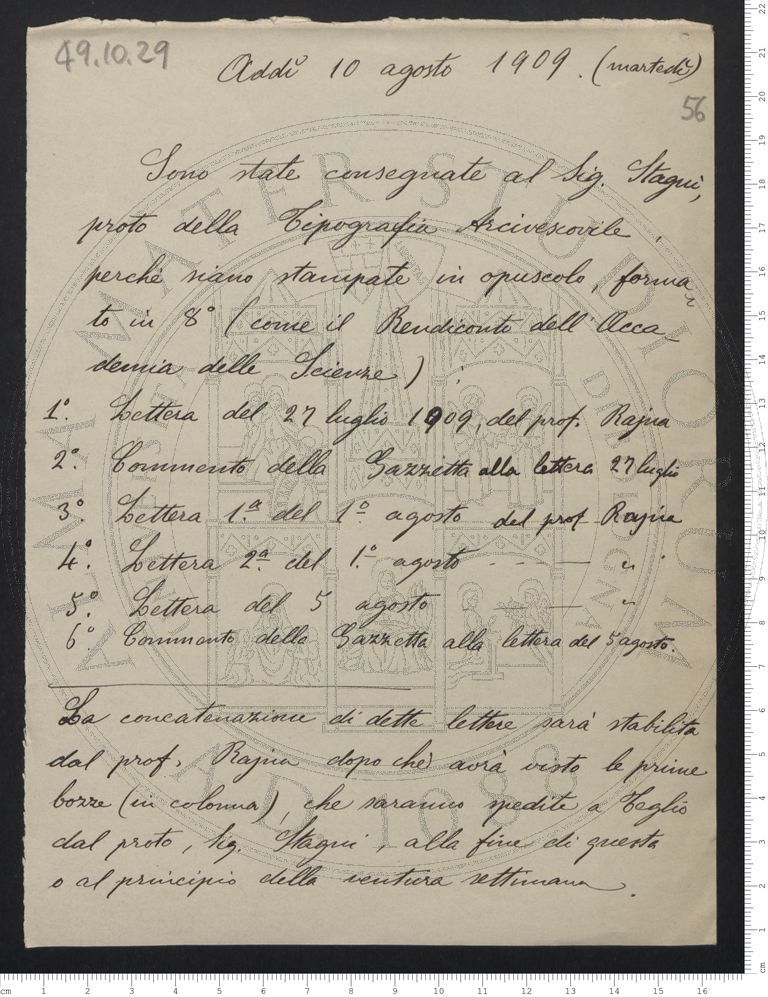 49.10.29
Addì 10 agosto 1909. (martedì)
56
Sono state consegnate al Sig. Stagni,
proto della Tipografia Arcivescovile,
perché siano stampate in opuscolo, forma-
to in 8° (come il Rendiconto dell'Acca-
demia delle Scienze):
1°. Lettera del 27 luglio 1909, del prof. Rajna
2°. Commento della Gazzetta alla lettera 27 luglio
3°. Lettera 1.a del 1° agosto del prof. Rajna
4°. Lettera 2a. del 1.° agosto - - - — "
5°. Lettera del 5 agosto — — "
6° Commento della Gazzetta alla lettera del 5 agosto.
La concatenazione di dette lettere sarà stabilita
dal prof. Rajna dopo che avrà visto le prime
bozze (in colonna), che saranno spedite a Teglio
dal proto, Sig. Stagni, alla fine di questa
o al principio della ventura settimana.
ALMA MATER STUDIORUM
A.D. 1088